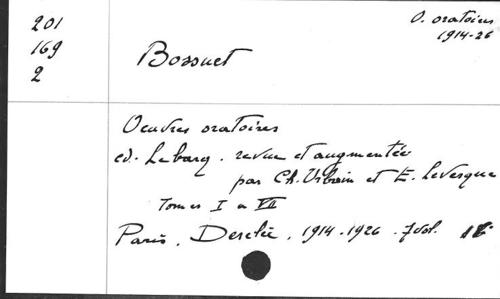 201
169
2
O. oratoires
1914-26
Bossuet
Oeuvres oratoires
ed. Lebarq. revue et augmentée
par Ch. Urbain et E. Levesque
Tomes I à VII
Paris, Desclée, 1914-1926. 7 vol.